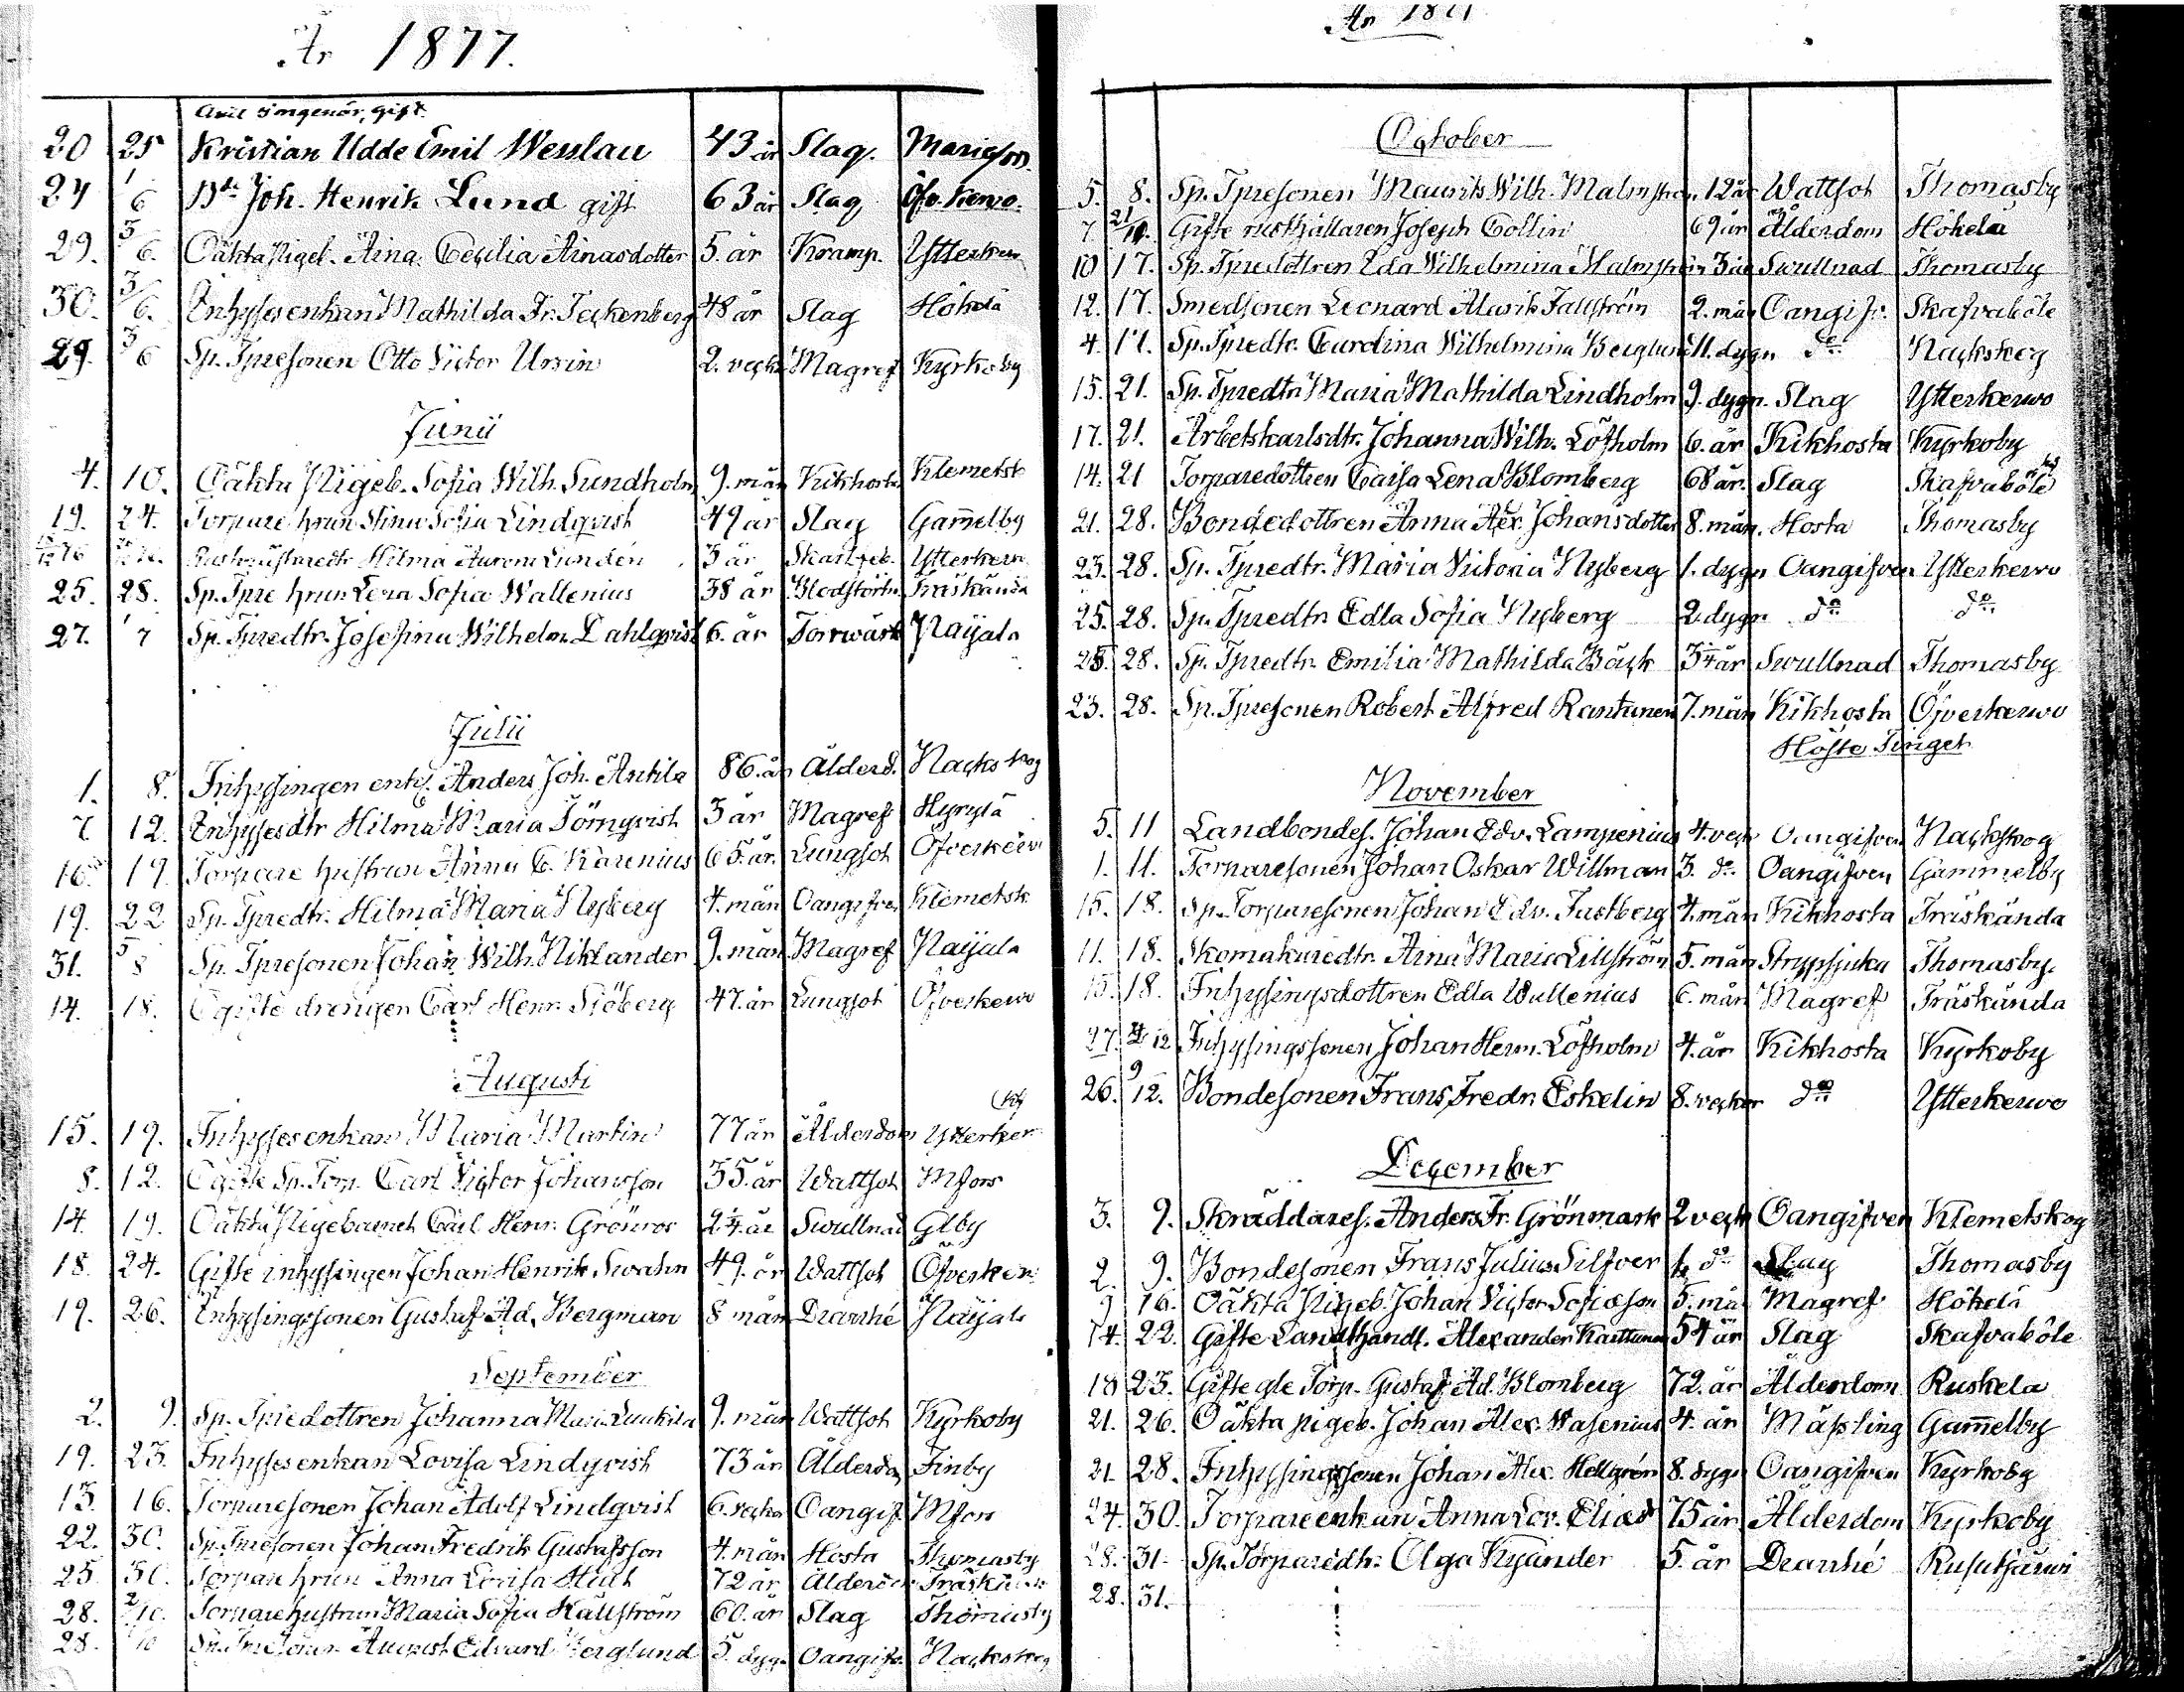 År 1877.
Civil Ingenör, gift.
20 25 Kristian Udde Emil Wesslau 43 år Slag. Mariefors.
24 1/6 Dto Joh. Henrik Lund gift 63 år Slag Öfv. Kerwo.
29. 3/6. Oäkta Pigeb. Aina Cecilia Ainasdotter 5. år Kramp. Ytterkerw
30. 3/6. Inhyses enkan Mathilda Fr. Teckenberg 48 år Slag Hökelä
29. 3/6 Sp. Tpresonen Otto Victor Ursin 2. veck Magref Kyrkoby
Junii
4. 10. Oäkta Pigeb. Sofia Wilh. Sundholm 9. mån Kikhosta Klemetsk
19. 24. Torpare hrun Stina Sofia Lindqvist 49 år Slag Gamelby
Hilma Aurora Lundén 3 år Skarlfeb. Ytterkerw
25. 28. Sp. Tpre hrun Lena Sofia Wallenius 38 år Blodstörtn. Träskända
27. 1/7 Sp. Tpredtr. Josefina Wilhelm. Dahlqvist 6. år Torrwärk Paijala
Julii
1. 8. Inhysingen enkl. Anders Joh. Antila 86. år Ålderd. Nackskog
7. 12. Inhysesdtr Hilma Maria Törnqvist 3 år Magref Hyrylä
16. 19. Torpare hustrun Anna C. Karenius 65. år. Lungsot Öfverkerw
19. 22 Sp. Tpredtr. Hilma Maria Nyberg 4. mån Oangifven Klemetsk
31. 5/8 Sp. Tpresonen Johan Wilh. Niklander 9. mån Magref Paijala
14. 18. Ogifte drengen Carl Henr. Sjöberg 47. år Lungsot Öfverkerwo
Augusti
15. 19. Inhyses enkan Maria Martin 77 år Ålderdom Ytterker
8. 12. Ogifte Sp. Torp. Carl Victor Johansson 35. år Wattsot Mfors
14. 19. Oäkta Pigebarnet Carl Henr. Grönros 2¼. år Swullnad Glby
18. 24. Gifte inhysingen Johan Henrik Swahn 49. år Wattsot Öfverker
19. 26. Inhysingssonen Gustaf Ad. Bergman 8 mån Diarrhé Paijala
September
2. 9. Sp. Tpredottren Johanna Mari. Luukila 9. mån Wattsot Kyrkoby
19. 23. Inhyses enkan Lovisa Lindqvist 73 år Ålderdom Finby
13. 16. Torparesonen Johan Adolf Lindqvist 6. veckor Oangif. Mfors
22. 30. Sp. Tpresonen Johan Fredrik Gustafsson 4. mån Hosta Thomasby
25. 30. Torpare hrun Anna Lovisa 72 år Ålderdom Träskända
28. 2/10. Torpare hustrun Maria Sofia Källström 60. år Slag Thomasby
28. /10 Sp. Tpresonen August Edvard Berglund 5. dygn Oangifv. Nackskog
År 1877
October
5. 8. Sp. Tpresonen Maurits Wilh. Malmström 12 år Wattsot Thomasby
7. 21/10. Gifte rusthållaren Joseph Collin 69 år Ålderdom Hökelä
10 17. Sp. Tpredottren Ida Wilhelmina Malmström 3 år Swullnad Thomasby
12. 17. Smedsonen Leonard Alarik Fallström 2. mån Oangifv. Skafvaböle
4. 17. Sp. Tpredtr. Carolina Wilhelmina Berglund 11. dygn do Nackskog
15. 21. Sp. Tpredtr Maria Mathilda Lindholm 9. dygn. Slag Ytterkerwo
17. 21. Arbetskarlsdtr. Johanna Wilh. Löfholm 6. år Kikhosta Kyrkoby
14. 21 Torparedottren Caisa Lena Blomberg 68 år. Slag Skafvaböle
21. 28. Bondedottren Anna Alex. Johansdotter 8. mån. Hosta Thomasby
23. 28. Sp. Tpredtr. Maria Victoria Nyberg 1. dygn Oangifven Ytterkerwo
25. 28. Sp. Tpredtr Edla Sofia Nyberg 2. dygn do do
25. 28. Sp. Tpredtr. Emilia Mathilda Bäck 3¼ år Swullnad Thomasby
23. 28. Sp. Tpresonen Robert Alfred Rantanen 7. mån Kikhosta Öfverkerwo
Höste Tinget
November
5. 11 Landbondes. Johan Edv. Lampenius 4. veck Oangifven Nackskog
1. 11. Torparesonen Johan Oskar Willman 3. do Oangifven Gammelby
15. 18. Sp. Torparesonen Johan Edv. Fastberg 4. mån Kikhosta Träskända
11. 18. Skomakaredtr. Aina Maria Lillström 5. mån Strypsjuka Thomasby.
15. 18. Inhysingsdottren Edla Wallenius 6. mån Magref Träskända
27. 4/12 Inhysingssonen Johan Herm. Löfholm 4. år Kikhosta Kyrkoby
26. 9/12. Bondesonen Frans Fredr. Eskelin 8. veckor do Ytterkerwo
December
3. 9. Skräddares. Anders Fr. Grönmark 2 veck Oangifven Klemetskog
2. 9. Bondesonen Frans Julius Silfver do Slag Thomasby
9 16. Oäkta Pigeb. Johan Victor Sofiasson 5. mån Magref Hökelä
14. 22. Gifte Landthandl. Alexander Karttunen 54 år Slag Skafvaböle
18 23. Gifte gle Torp. Gustaf Ad. Blomberg 72. år Ålderdom Ruskela
21. 26. Oäkta pigeb. Johan Alex. Wasenius 4. år Mässling Gamelby
21. 28. Inhysingssonen Johan Alex. Hellgrén 8. dygn Oangifven Kyrkoby
24. 30. Torpareenkan Anna Lov. Elias 75 år Ålderdom Kyrkoby
28. 31. Sp. Torparedtr. Olga Kyander 5. år Diarrhé Rusutjärwi
28. 31.